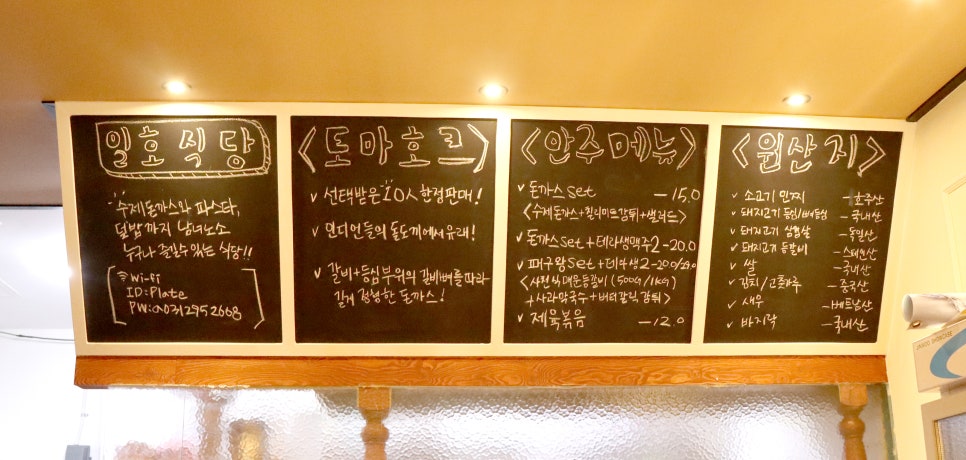 일호식당
수제돈까스와 파스타,
덮밥까지 남녀노소
누구나 즐길수 있는 식당!!
Wi-Fi
ID:Plate
PW:0312952668
<토마호크>
✓ 선택받은 10人 한정판매!
✓ 인디언들의 돌도끼에서 유래!
✓ 갈비+등심부위의 갈비뼈를 따라
길게 정형한 돈까스!
<안주메뉴>
✓ 돈까스 set -15.0
<수제돈까스+컬리미트감튀+샐러드>
✓ 돈까스 set + 테라생맥주2 -20.0
✓ 패구왕 set + 테라생2 -20.0/29.0
<사천식매운등갈비 (500G/1KG)
+사라막국수+버터갈릭감튀>
✓ 제육볶음 -12.0
<원산지>
✓ 소고기 민찌 -호주산
✓ 돼지고기 등심/뼈등심 -국내산
✓ 돼지고기 삼겹살 -독일산
✓ 돼지고기 등갈비 -스페인산
✓ 쌀 -국내산
✓ 김치/고춧가루 -중국산
✓ 새우 -베트남산
✓ 바지락 -국내산